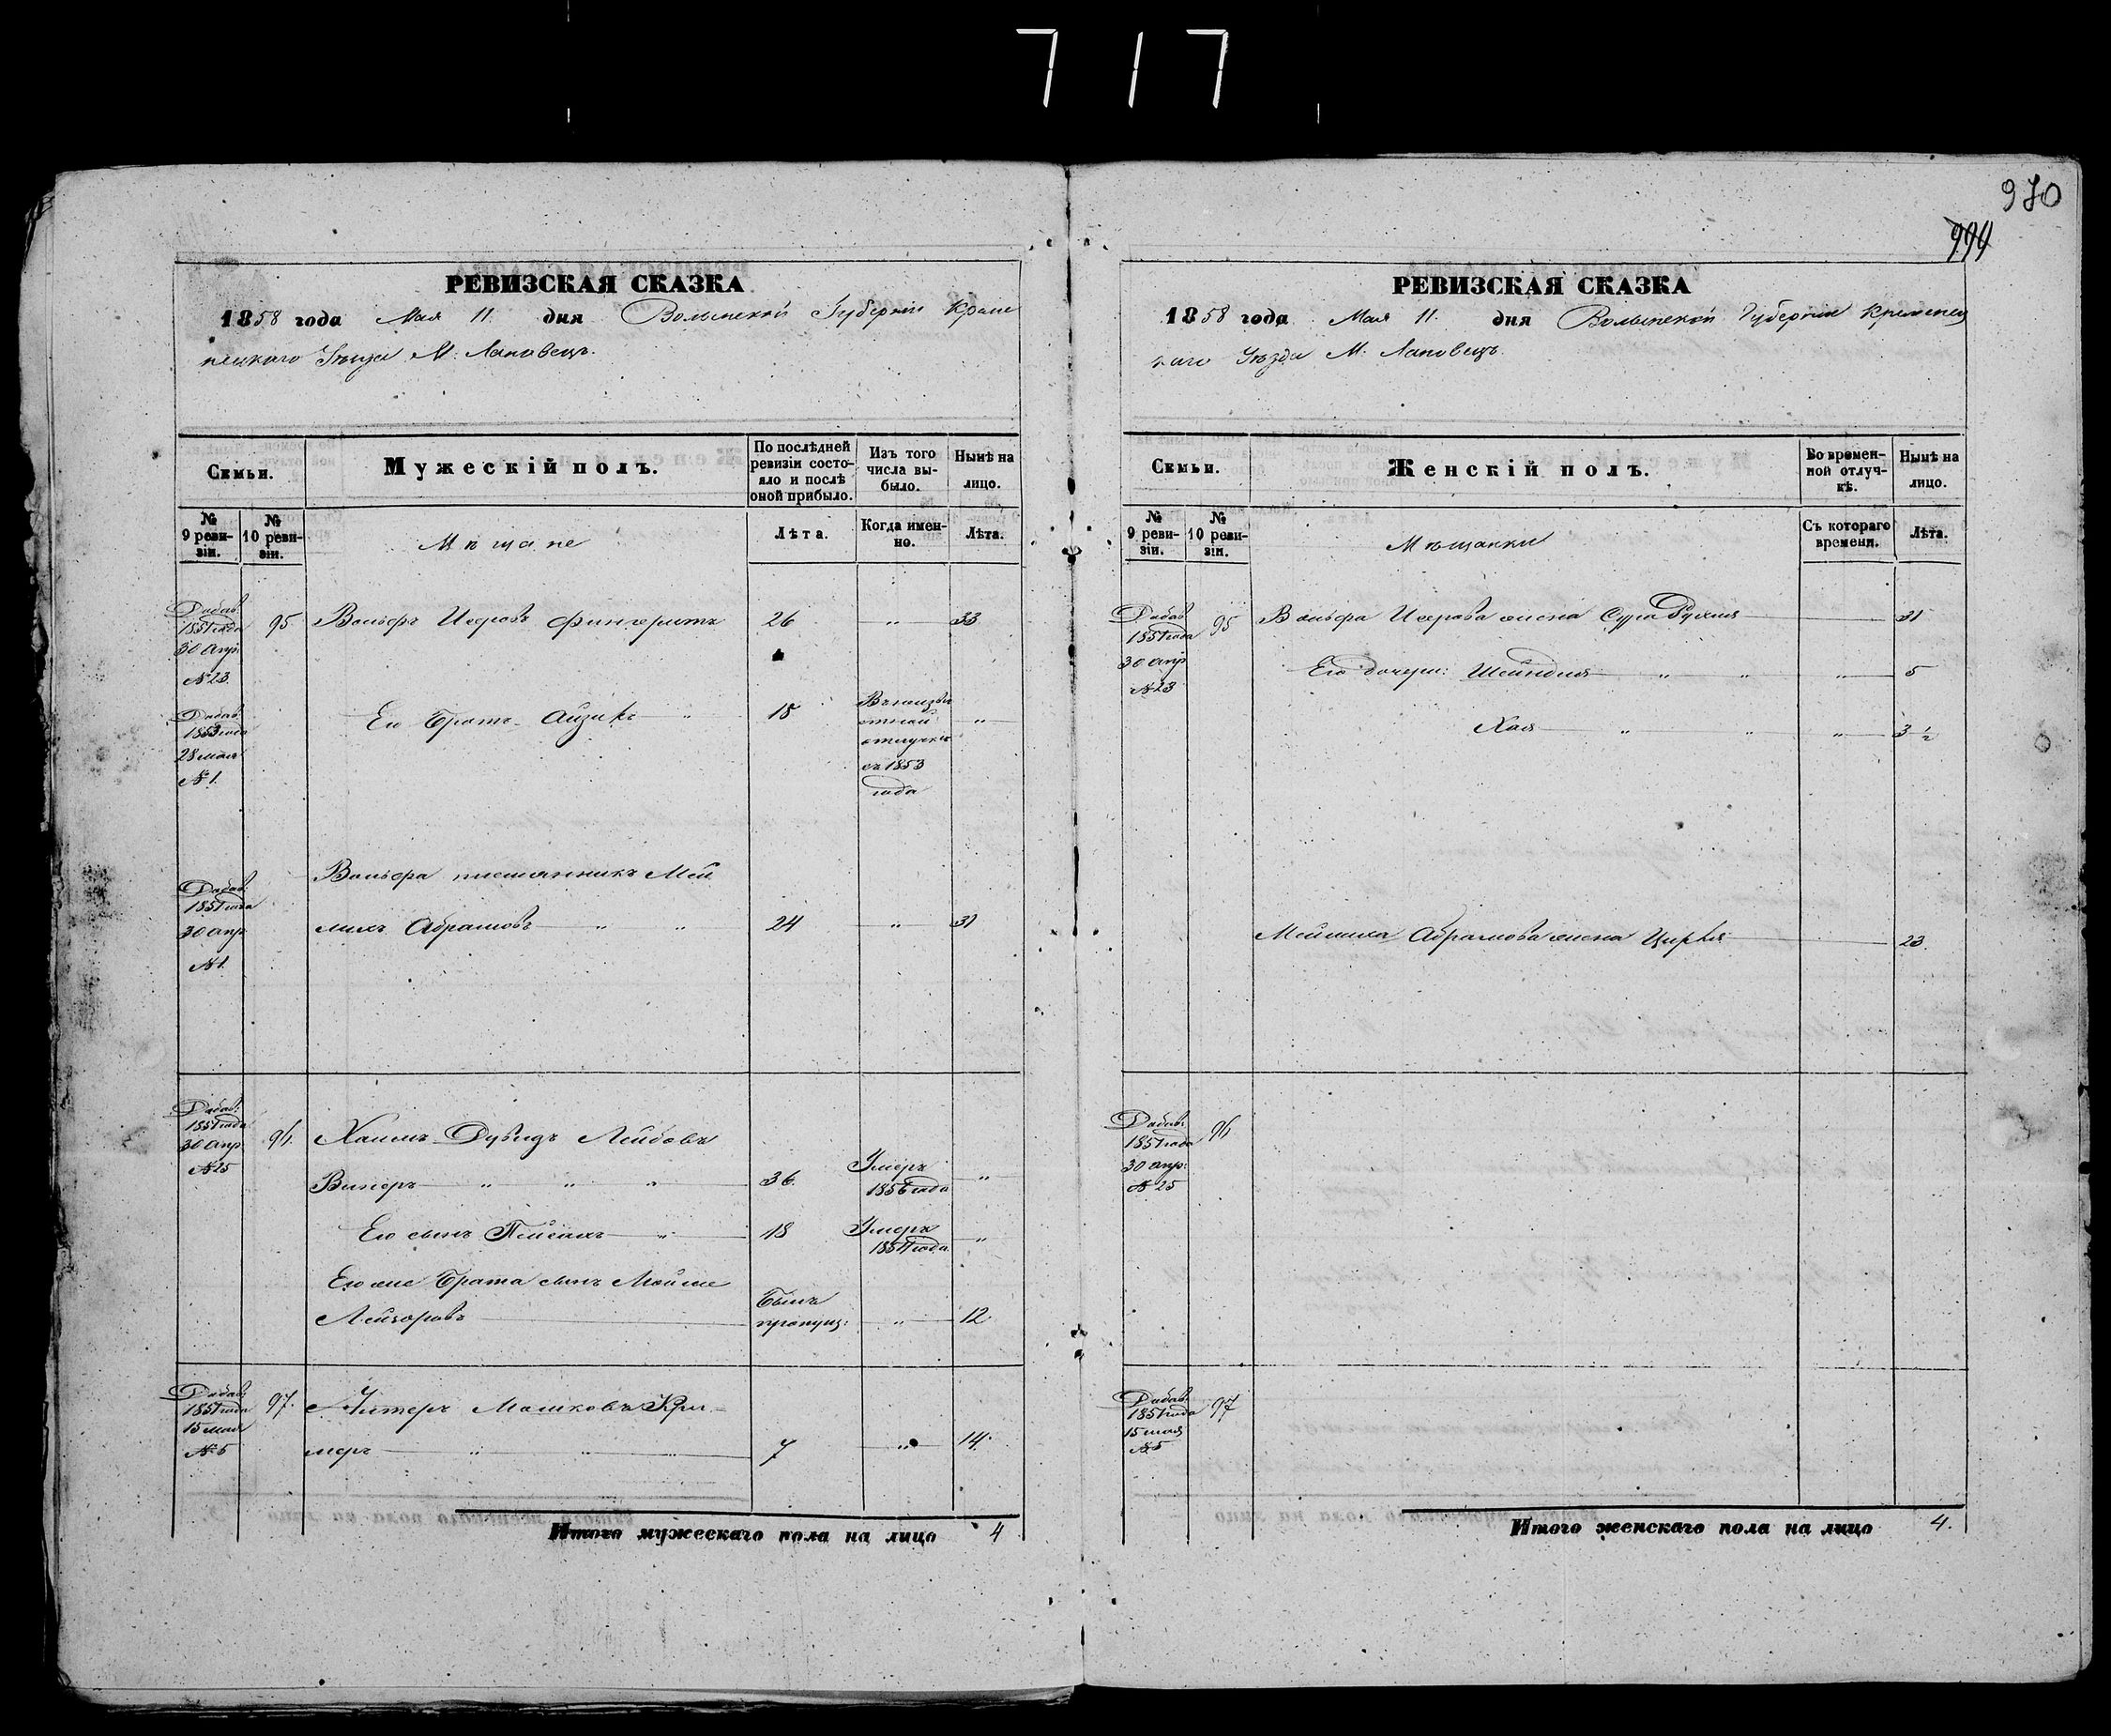 717
970
999
РЕВИЗСКАЯ СКАЗКА
1858 года Мая 11. дня Волынской Губерніи Креме
нецкаго Уѣзда М. Лановецъ.
Семьи.
Мужескій полъ.
По послѣдней
ревизіи состо-
яло и послѣ
оной прибыло.
Изъ того
числа вы-
было.
Нынѣ на
лицо.
№
9 реви-
зіи.
№
10 реви-
зіи.
Мѣщане
Лѣта.
Когда имен-
но.
Лѣта.
Добав:
1851 года
30 апр.
№ 23.
95. Вольфъ Иосовъ 26 " 33
Добав:
1853 года
28 мая
№ 1.
Его Братъ Айзикъ " 18
Въ неизвѣ
стной
отлучкѣ
съ 1853
года
"
Добав:
1851 года
30 апр
№ 1.
Вольфа племянникъ Мей
лихъ Абрамовъ " " 24 " 31
Добав:
1851 года
30 апр.
№ 25
96. Хаимъ Дувидъ Лейбовъ
Винеръ " " " 36. Умеръ 1856 года "
Его сынъ Пейсахъ " 18 Умеръ 1851 года "
Его же Брата сынъ Мойше
Лейзоровъ Былъ пропущ: " 12
Добав:
1851 года
15 мая
№ 5
97. Мошковъ Кри
меръ " " " 7 " 14.
Итого мужескаго пола на лицо 4
РЕВИЗСКАЯ СКАЗКА
1858 года Мая 11. дня Волынской Губерніи Кременец
каго Уѣзда М. Лановецъ.
Семьи.
Женскій полъ.
Во времен-
ной отлуч-
кѣ.
Нынѣ на
лицо.
№
9 реви-
зіи.
№
10 реви-
зіи.
Мѣщанки
Съ котораго
времени.
Лѣта.
Добав:
1851 года
30 апр
№ 23
95 Вольфа жена Сура Рухля 31
Его дочери: Шейндля " " " 5
Хая " " " 3 ½
Мейлиха Абрамова жена Цирля 23.
Добав:
1851 года
30 апр:
№ 25
96
Добав:
1851 года
15 мая
№ 5
97
Итого женскаго пола на лицо 4.